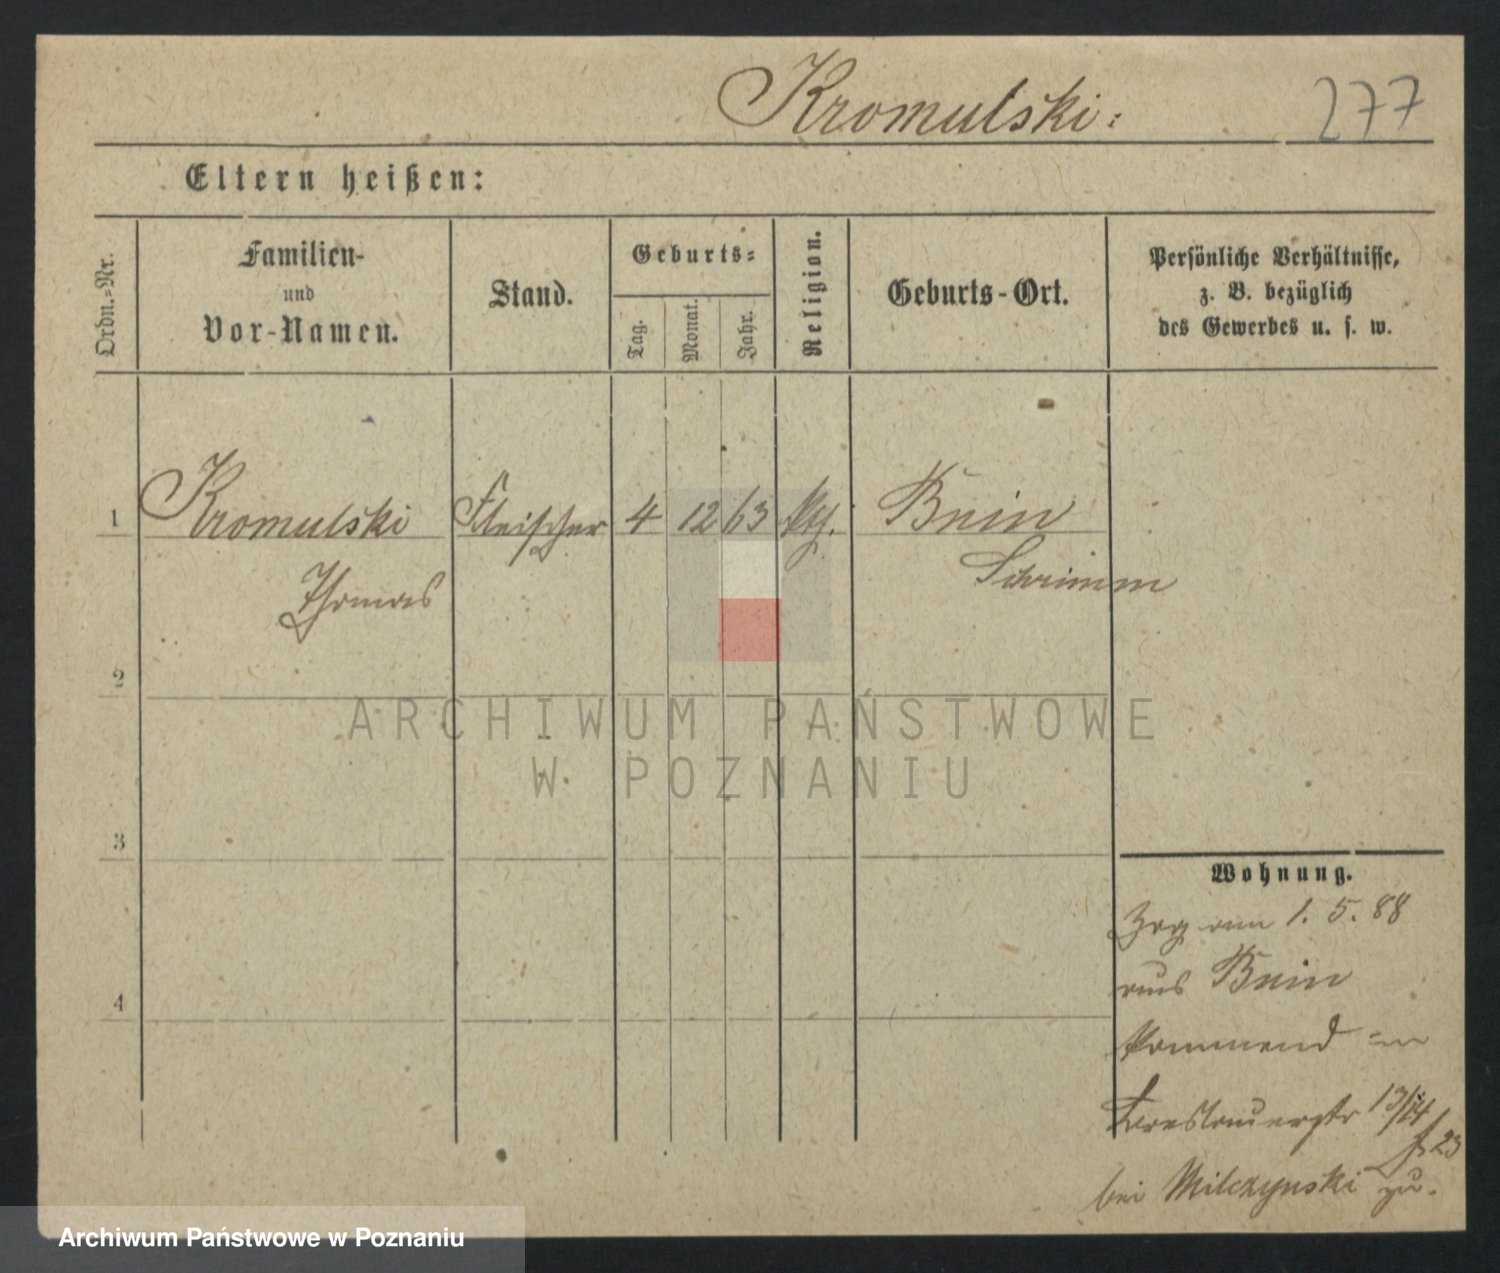 Kromulski:
277
Eltern heißen:
Ordn.-Nr.
Familien-
und
Vor-Namen.
Stand.
Geburts-
Tag.
Monat.
Jahr.
Religion.
Geburts-Ort.
Persönliche Verhältnisse,
z. B. bezüglich
des Gewerbes u. s. w.
1 Kromulski Fleischer 4 12 63 kth. Bnin
Thomas Schrimm
2
ARCHIWUM PAŃSTWOWE
W POZNANIU
3
Wohnung.
Zog am 1. 5. 88
aus Bnin
kommend
Breslauerstr 13/14
23
bei Milczynski zu.
4
Archiwum Państwowe w Poznaniu